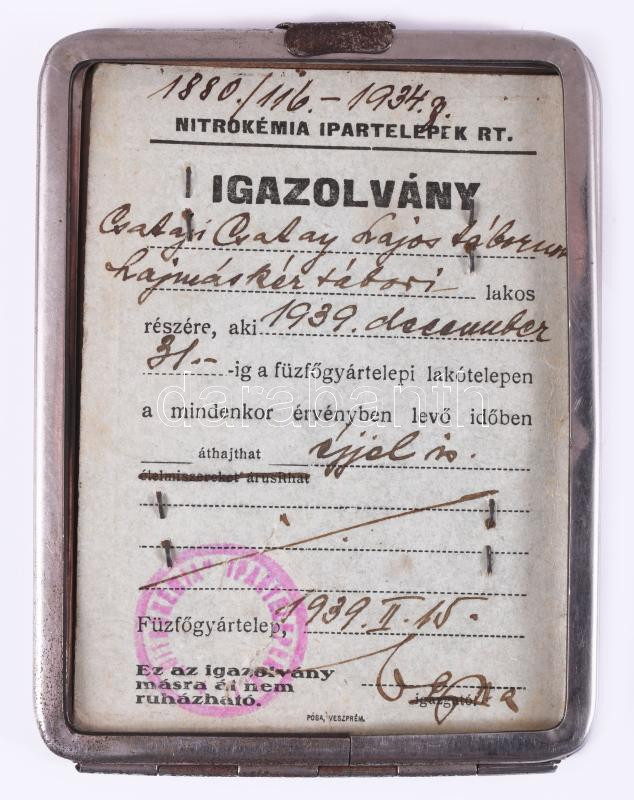 1880./116.-1934.
NITROKÉMIA IPARTELEPEK RT.
IGAZOLVÁNY
Csatay Lajos
Hajmáskér tábori lakos
részére, aki 1939. december
31.-ig a fűzfőgyártelepi lakótelepen
darabanth
a mindenkor érvényben levő időben
áthajthat éjjel is.
élelmiszereket árusíthat
IPARTELEPEK
Fűzfőgyártelep, 1939. II. 15.
Ez az igazolvány
másra át nem
ruházható.
igazgató
PÓSA, VESZPRÉM.